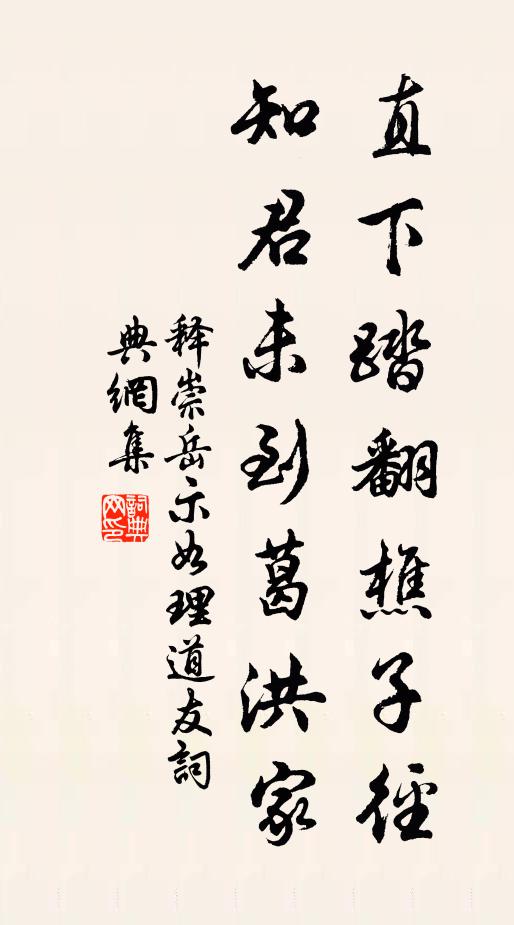 直下踏翻樵子径
知君未到葛洪家
释崇岳示如理道友詞
典網集
詞典網印